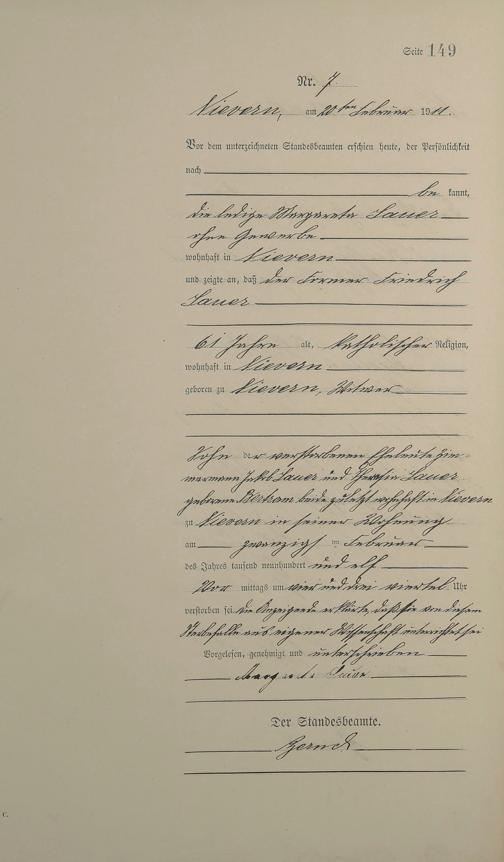 Seite 149
Nr. 7
Nievern, am 20ten Februar 1911.
Vor dem unterzeichneten Standesbeamten erschien heute, der Persönlichkeit
nach
be kannt,
die ledige Margareta Sauer
ohne Gewerbe
wohnhaft in Nievern
und zeigte an, daß der Former Friedrich
Sauer
61 Jahre alt, katholischer Religion,
wohnhaft in Nievern
geboren zu Nievern, Witwer
Sohn der verstorbenen Eheleute Zim-
mermann Jakob Sauer und Sauer
geborene Bertram beide zuletzt wohnhaft in Nievern
zu Nievern in seiner Wohnung
am zwanzigsten Februar
des Jahres tausend neunhundert und elf
Vor mittags um vier und drei viertel Uhr
verstorben sei. Die Anzeigende erklärte, daß sie von diesem
Sterbefalle aus eigener Wissenschaft unterrichtet sei
Vorgelesen, genehmigt und unterschrieben
Sauer
Der Standesbeamte.
c.